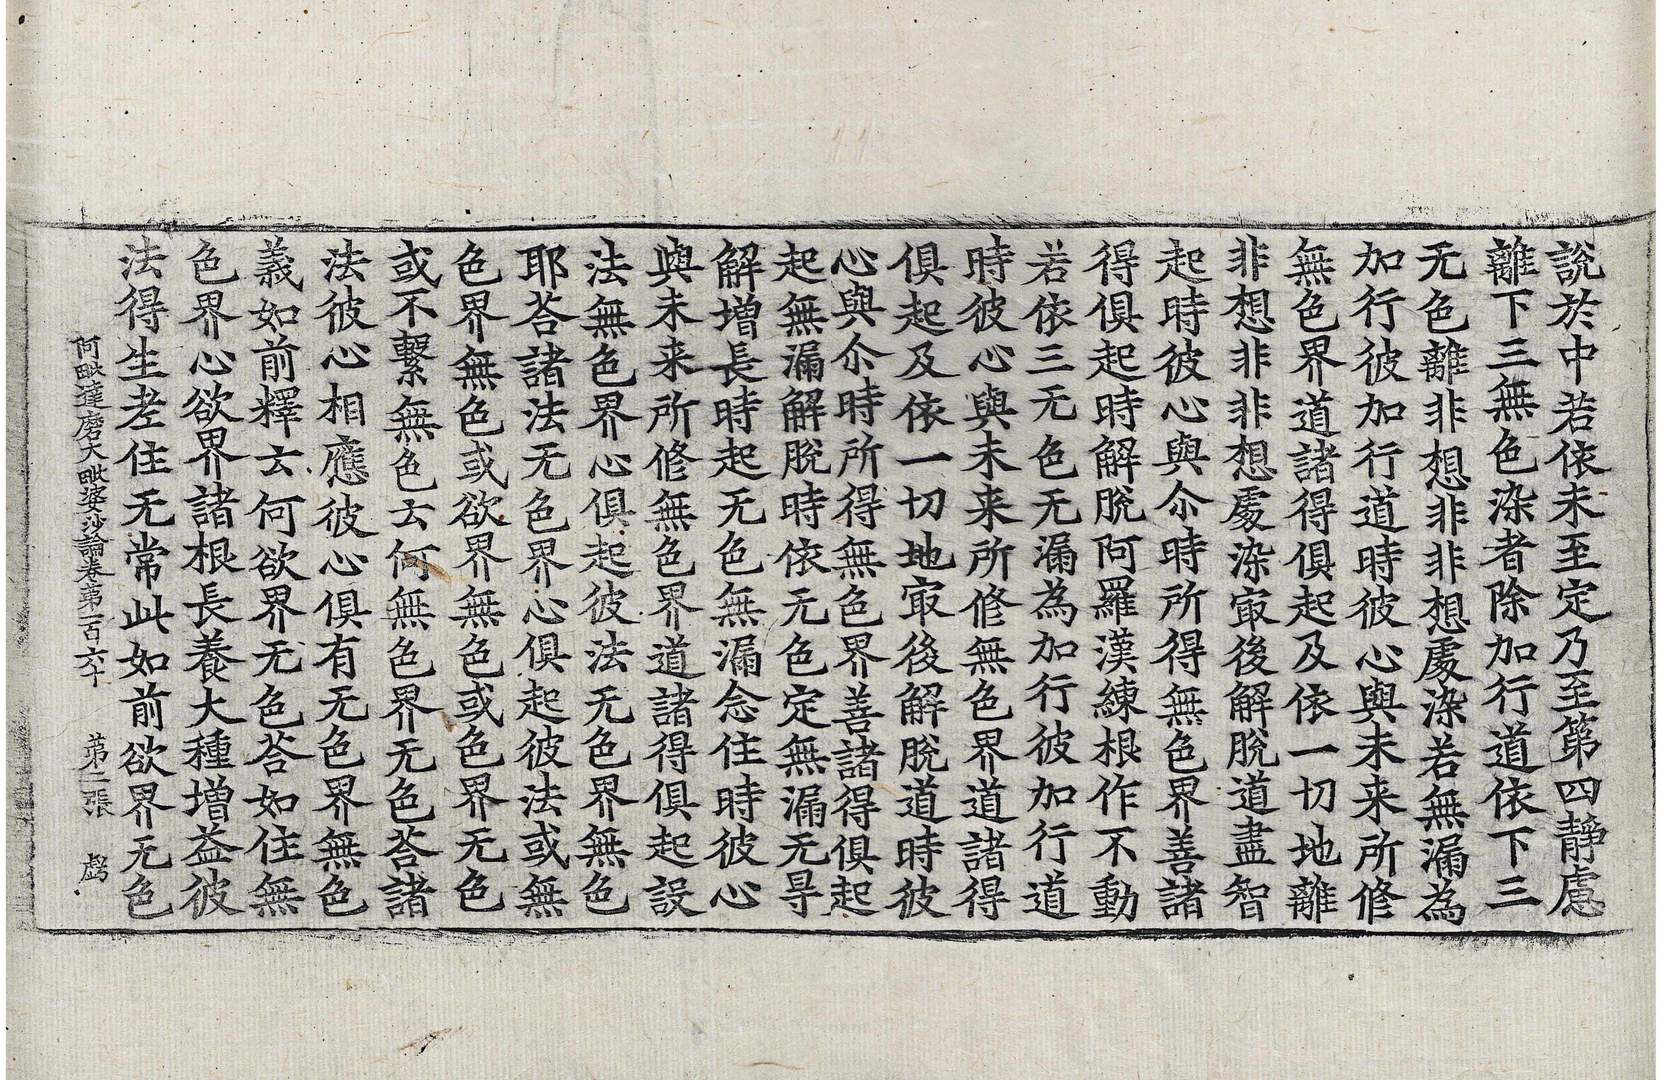 說於中若依未至定乃至第四靜慮
離下三無色染者除加行道依下三
无色離非想非非想處染若無漏為
加行彼加行道時彼心與未来所修
無色界道諸得俱起及依一切地離
非想非非想處染㝡後解脫道盡智
起時彼心與尒時所得無色界善諸
得俱起時解脫阿羅漢練根作不動
若依三无色无漏為加行彼加行道
時彼心與未来所修無色界道諸得
俱起及依一切地㝡後解脫道時彼
心與尒時所得無色界善諸得俱起
起無漏解脫時依无色定無漏无㝵
解增長時起无色無漏念住時彼心
與未来所修無色界道諸得俱起設
法無色界心俱起彼法无色界無色
耶荅諸法无色界心俱起彼法或無
色界無色或欲界無色或色界无色
或不繫無色云何無色界无色荅諸
法彼心相應彼心俱有无色界無色
義如前釋云何欲界无色荅如住無
色界心欲界諸根長養大種增益彼
法得生老住无常此如前欲界无色
阿毗達磨大毗婆沙論卷第一百六十 第二張